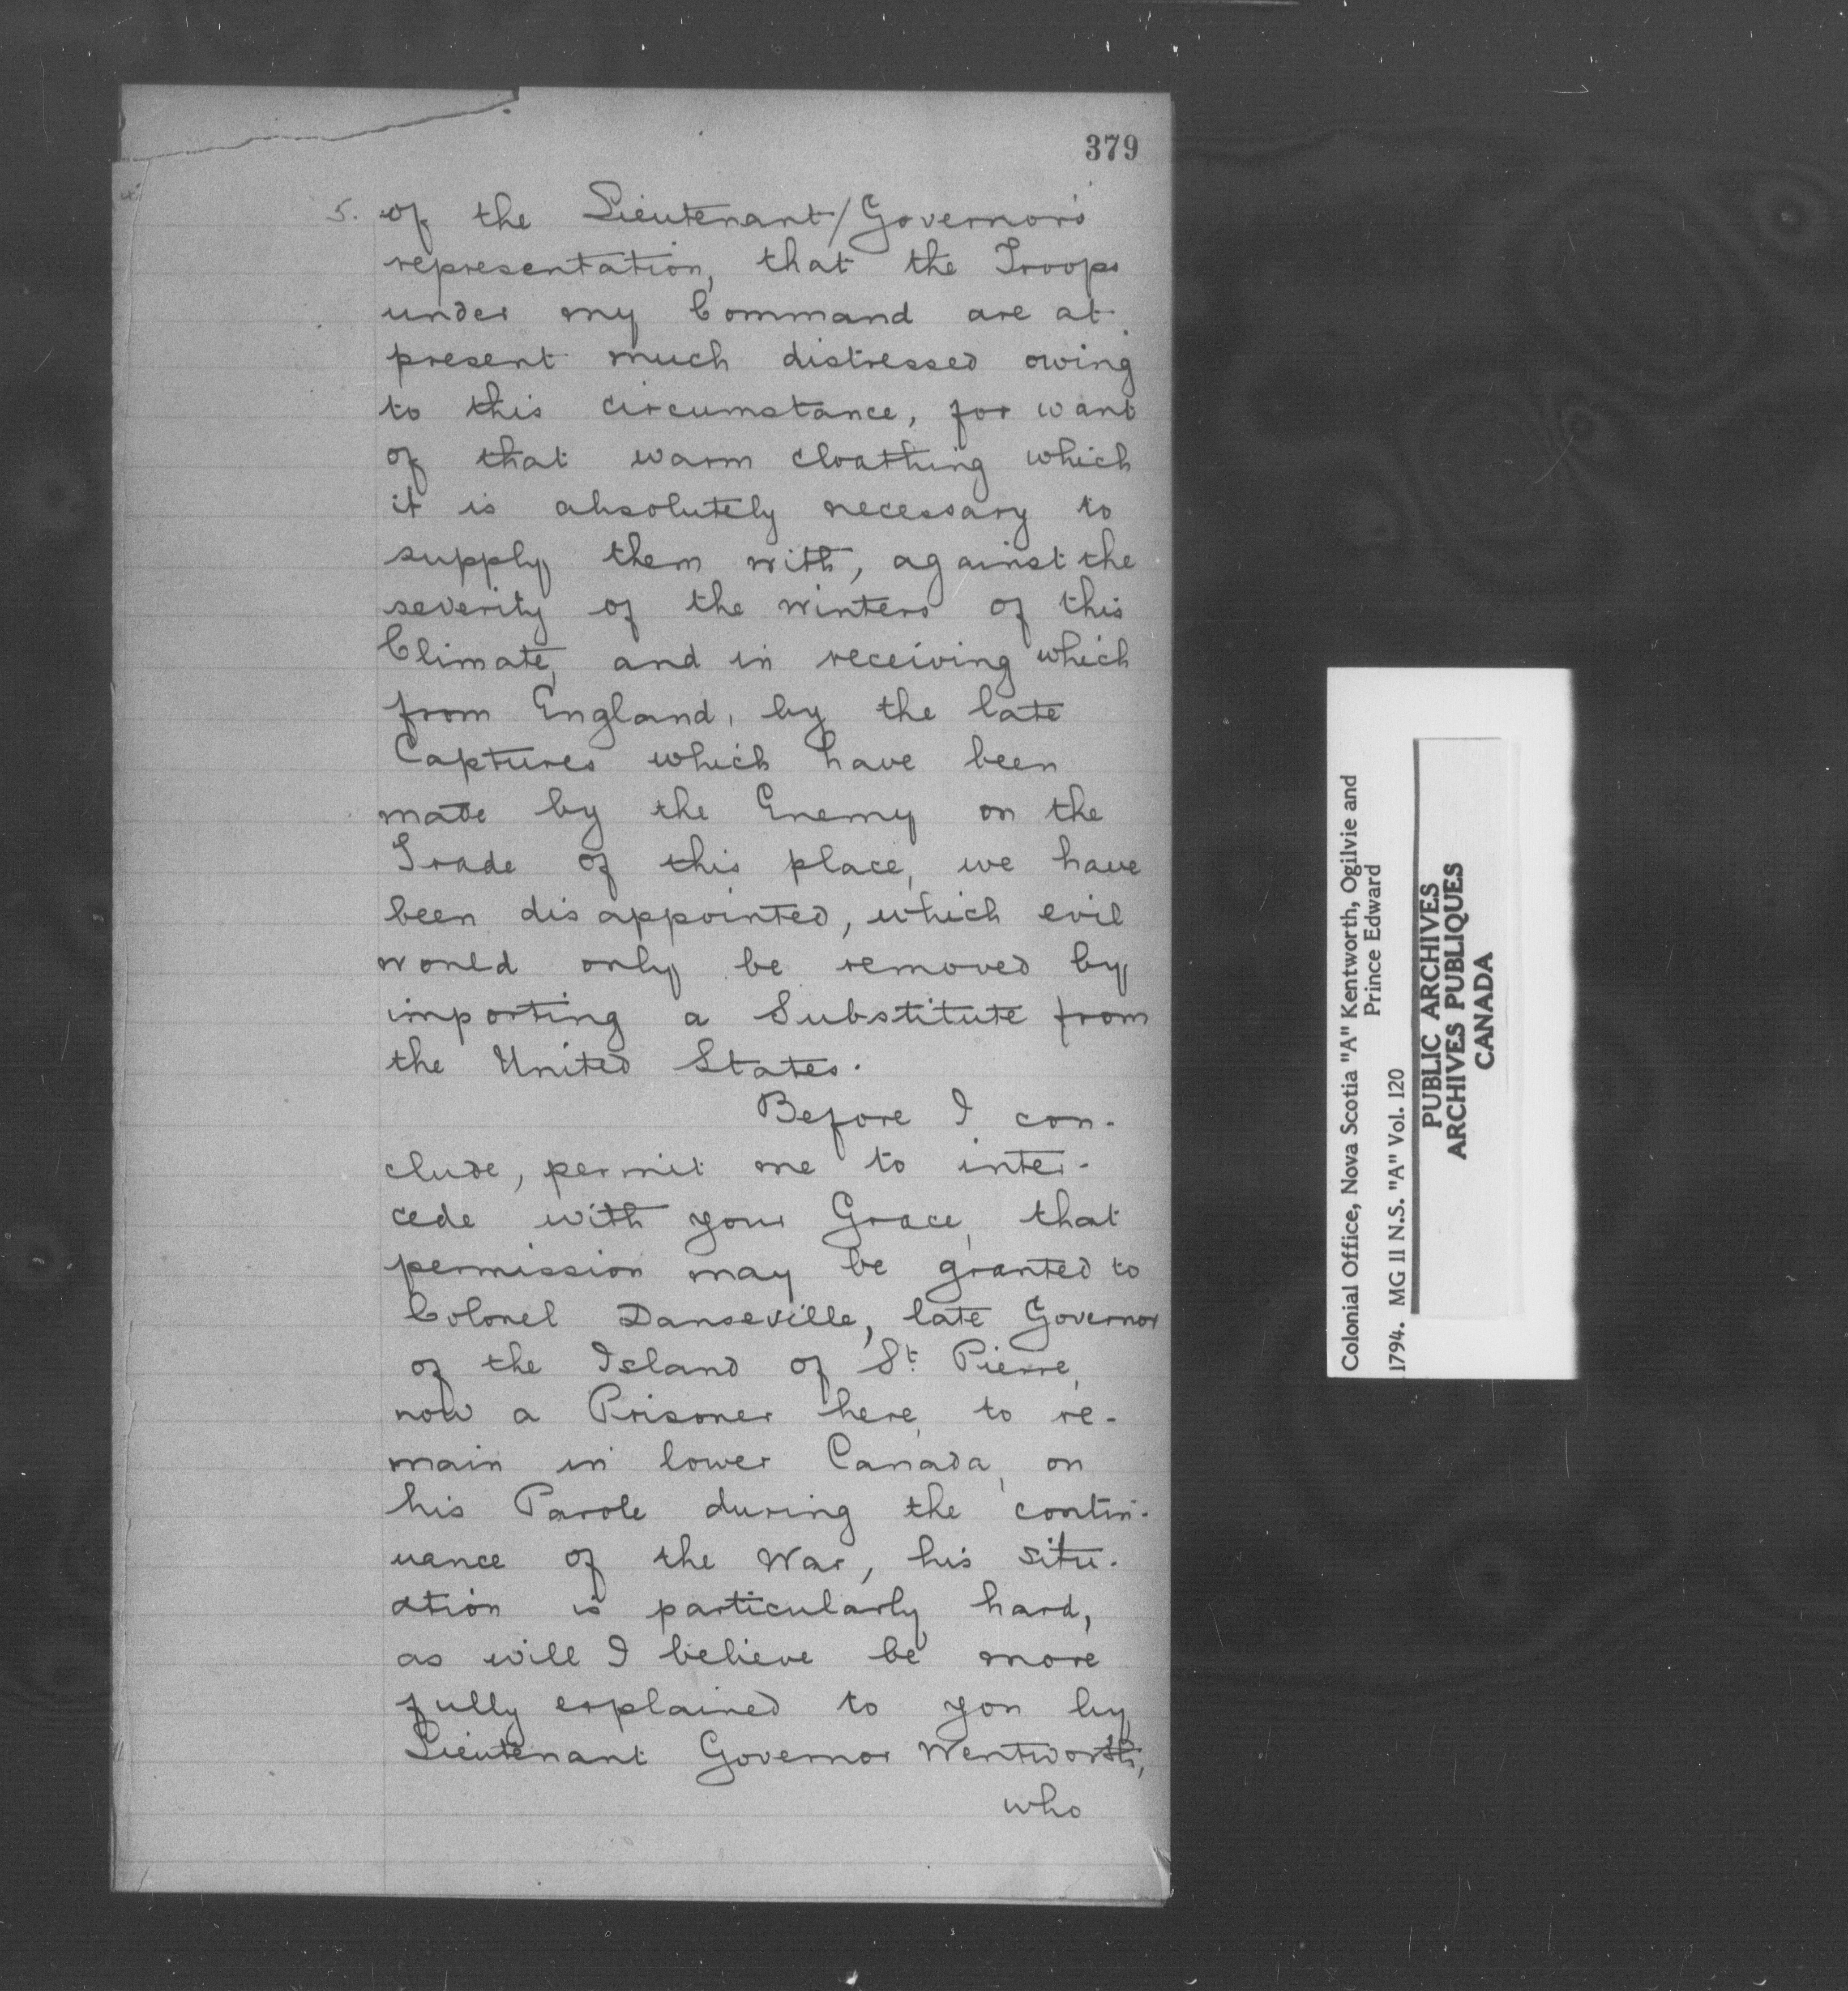 379
5. of the Lieutenant/Governor's
representation, that the Troops
under my Command are at
present much distressed owing
to this circumstance, for want
of that warm cloathing which
it is absolutely necessary to
supply them with, against the
severity of the winters of this
Climate, and in receiving which
from England, by the late
Captures which have been
made by the Enemy on the
Trade of this place, we have
been disappointed, which evil
would only be removed by
importing a Substitute from
the United States.
Before I con-
clude, permit me to inter-
cede with your Grace, that
permission may be granted to
Colonel Danseville, late Governor
of the Island of St. Pierre,
now a Prisoner here, to re-
main in lower Canada, on
his Parole during the contin-
uance of the War, his situ-
ation is particularly hard,
as will I believe be more
fully explained to you by
Lieutenant Governor Wentworth,
who
Colonial Office, Nova Scotia "A" Kentworth, Ogilvie and
Prince Edward
1794. MG 11 N.S. "A" Vol. 120
PUBLIC ARCHIVES
ARCHIVES PUBLIQUES
CANADA